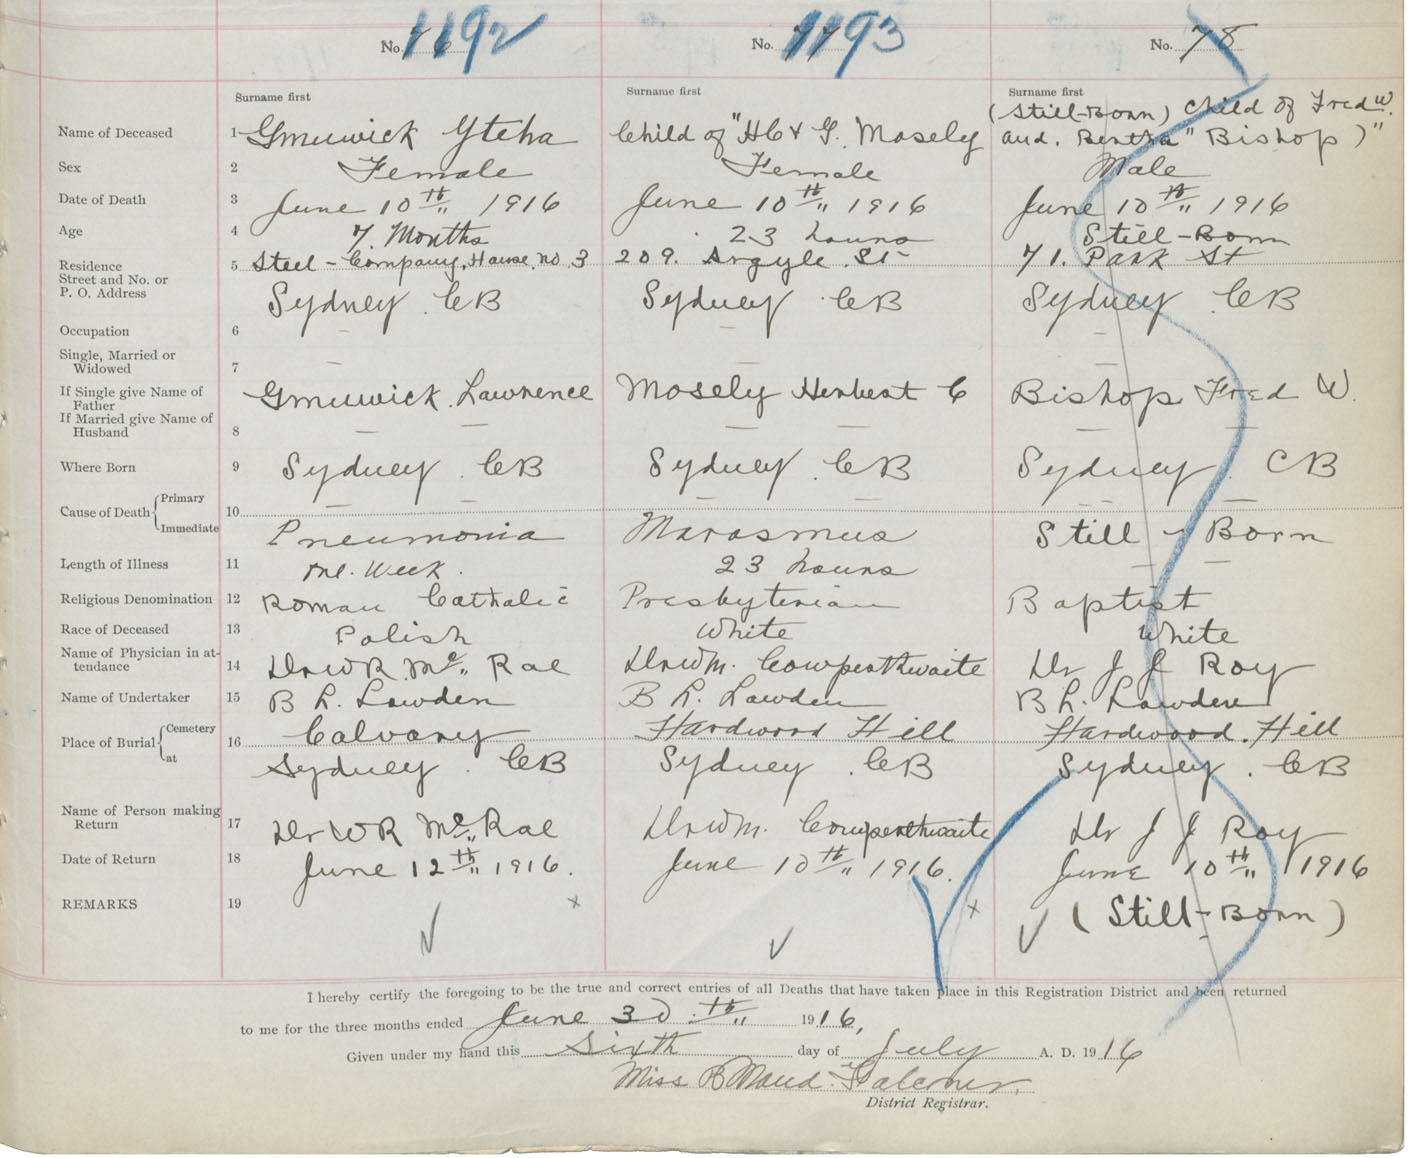 No. 76 1192
No. 77 1193
No. 78
Surname first
Surname first
Surname first
(Still-Born) Child of Fred W.
Name of Deceased 1 Gmuwick Child of "H C & G. Mosely and. Bertha "Bishop)"
Sex 2 Female Female Male
Date of Death 3 June 10th 1916 June 10th 1916 June 10th 1916
Age 4 7 Months 23 hours Still-Born
Residence 5 Steel-Company, House. no. 3 209. Argyle. St 71. Park St
Street and No. or
P. O. Address Sydney CB Sydney CB Sydney CB
Occupation 6 — — —
Single, Married or
Widowed 7 — — —
If Single give Name of
Father Gmuwick. Lawrence Mosely Herbert C Bishop Fred W.
If Married give Name of
Husband 8 — — — — — —
Where Born 9 Sydney. CB Sydney. CB Sydney CB
Cause of Death { Primary 10 — — — — —
Immediate Pneumonia Marasmus Still-Born
Length of Illness 11 one. Week. 23 hours — —
Religious Denomination 12 Roman Catholic Presbyterian Baptist
Race of Deceased 13 Polish White White
Name of Physician in at-
tendance 14 Dr W R. Mc Rae Dr Wm. Cowperthwaite Dr J J Roy
Name of Undertaker 15 B L. Lowden B L. Lowden B L. Lowden
Place of Burial { Cemetery 16 Calvary Hardwood Hill Hardwood. Hill
at Sydney. CB Sydney. CB Sydney. CB
Name of Person making
Return 17 Dr W R Mc Rae Dr Wm. Cowperthwaite Dr J J Roy
Date of Return 18 June 12th 1916. June 10th 1916. June 10th 1916
REMARKS 19 x x (Still-Born)
I hereby certify the foregoing to be the true and correct entries of all Deaths that have taken place in this Registration District and been returned
to me for the three months ended June 30th 1916,
Given under my hand this Sixth day of July A. D. 1916
Miss B Maud. Falconer.
District Registrar.